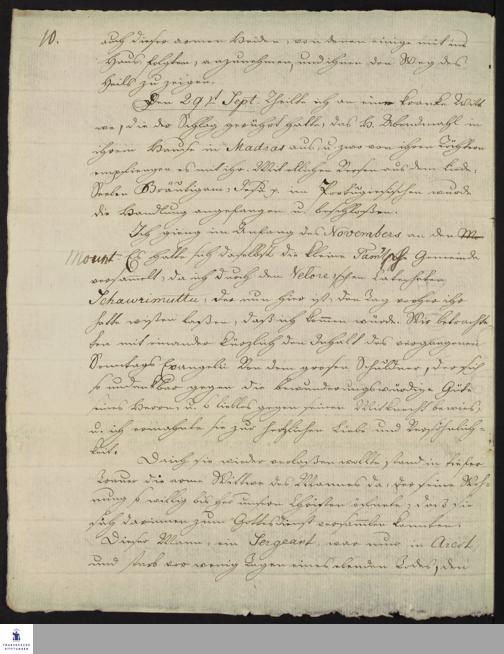 10.
auch dieser armen Heiden, von denen einige mit ins
Haus folgten, anzunehmen, und ihnen den Weg des
Heils zu zeigen.
Den 29 st Sept. theilte ich an eine kranke Witt
we, die der Schlag gerührt hatte, das H. Abendmahl in
ihrem Hause in Madras aus, u. zwar von ihren Töchtern
empfiengen es mit ihr. Mit etlichen Versen aus dem Liede,
Seelen Bräutigam, Jesu p. im Portugiesischen wurde
die Handlung angefangen u. beschloßen.
Ich gieng im Anfang des Novembers an den
Mount. Es hatte sich daselbst die kleine Gemeinde
versammelt, da ich durch den Velore schen Catecheten
Schawrimuttu, der nun hier ist, den Tag vorher ihr
hatte wissen laßen, daß ich kommen würde. Wir betrachte
ten mit einander kürzlich den Inhalt des vergangenen
Sonntags Evangelii von dem großen Schuldner, der sich
so undankbar gegen die bewundernswürdige Güte
seines Herrn, u. so lieblos gegen seinen Mitknecht bewies,
u. ich ermahnte sie zur herzlichen Liebe und Versöhnlich
keit.
Da ich sie wieder verlaßen wollte, stand in tiefer
Trauer die arme Wittwe des Mannes da, der seine Woh
nung so willig bisher unsern Christen öfnete, daß sie
sich darinnen zum Gottesdienst versammlen konnten.
Dieser Mann, ein Sergeant, war nun in Arcot,
und starb vor wenig Tagen eines elenden Todes, den
FRANCKESCHE
STIFTUNGEN